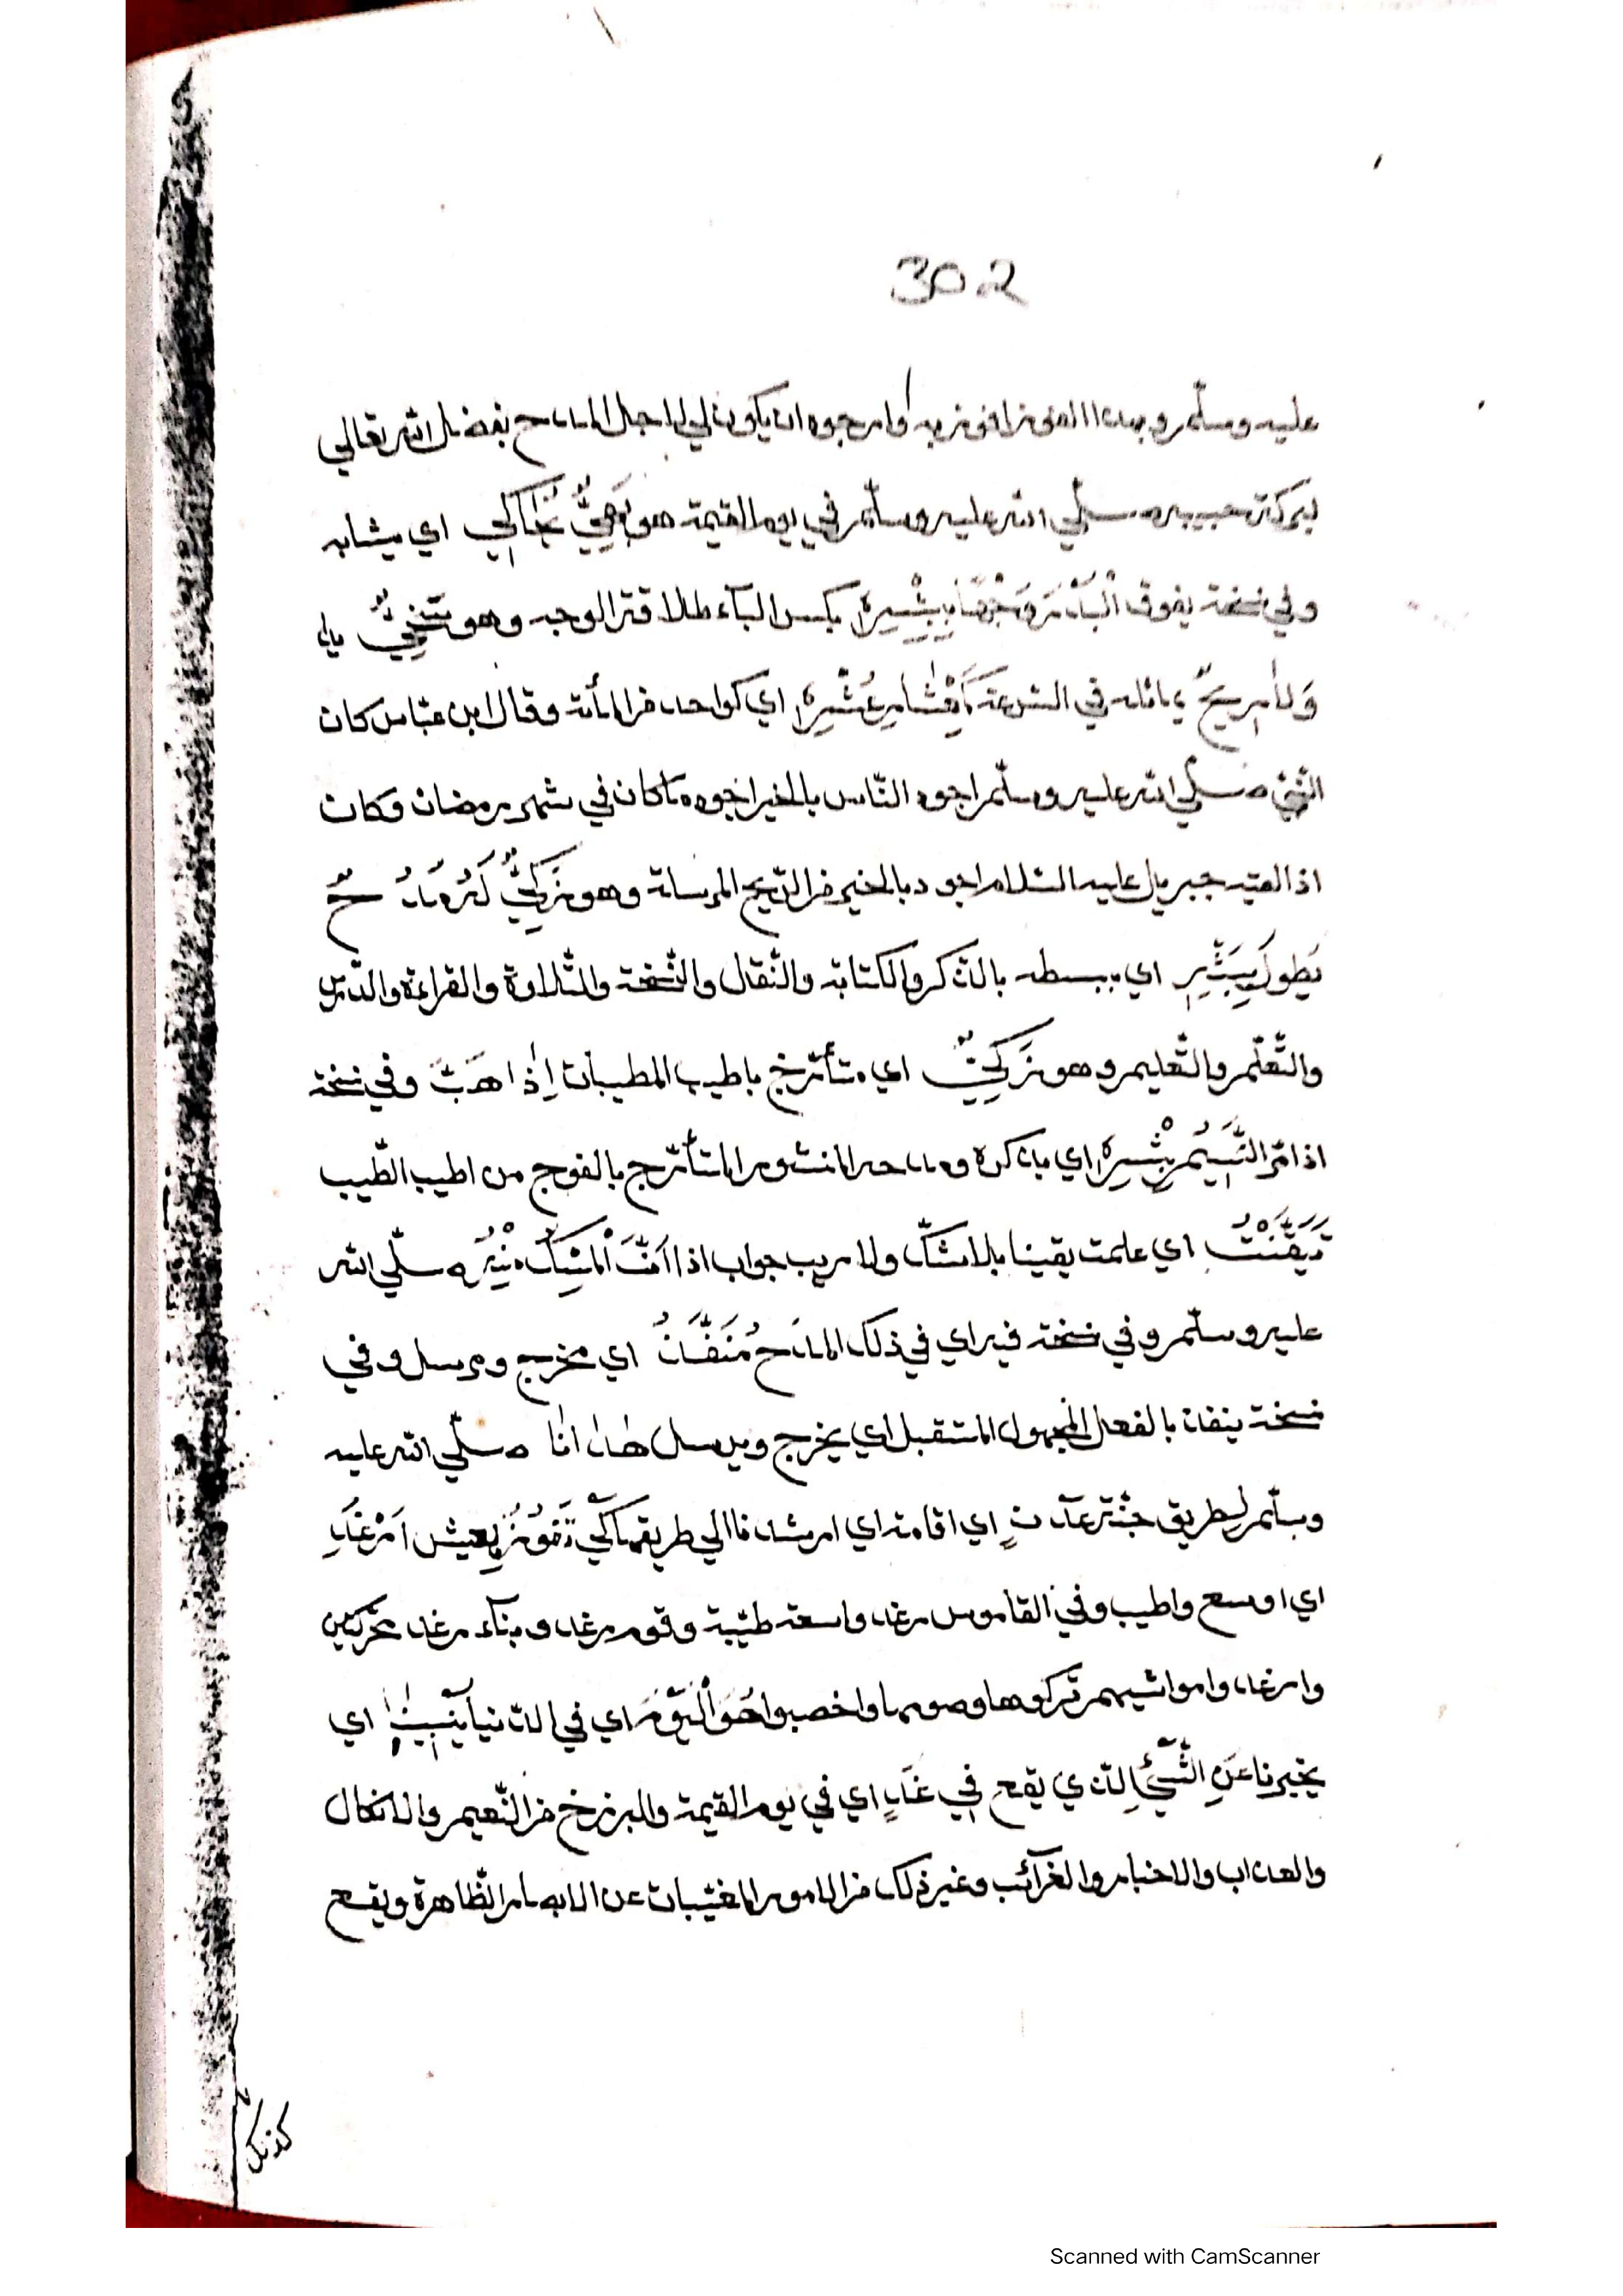 302
عليه وسلّم وبهذا الفوز افوز به وارجوه ان يكون لي لاجل المادح بفضل الله تعالي
ببركة حبيبه صلّي الله عليه وسلّم في يوم القيمة هو بَهِيٌّ يُحَاكِي اي يشابه
وفي نسخة يفوق الْبَدْرَ وَجْهًا بِبِشْرِهِ بكسر البآء طلاقة الوجه وهو سَخِيٌّ
وَلَا رِيحٌ يماثله في السّرعة كَمِعْشَارِ عُشْرِهِ اي كواحد من المأئة وقال ابن عبّاس كان
النّبيّ صلّي الله عليه وسلّم اجود النّاس بالخير اجود ما كان في شهر رمضان وكان
اذا لقيه جبريل عليه السّلام اجود بالخير من الرّيح المرسلة وهو زَكِيٌّ لَهُ مَدْحٌ
يَطُولُ بِبَثِّهِ اي ببسطه بالذّكر والكتابة والنّقل والنّسخة والتّلاوة والقراءة والدّرس
والتّعلّم والتّعليم وهو زَكِيٌّ اي متأرّج باطيب المطيبات اِذَا هَبَّ وفي نسخة
اذا مرّ النَّسِيمُ بِنَشْرِهِ اي بذكره ومدحه المنشور المتأرّج بالفوج من اطيب الطّيب
تَيَقَّنْتُ اي علمت يقينا بلا شكّ ولا ريب جواب اذا اَنَّ الْمِسْكَ مِنْهُ صلّي الله
عليه وسلّم وفي نسخة فيه اي في ذلك المدح مُنَفَّذُ اي مخرج ومرسل وفي
نسخة ينفذ بالفعل المجهول المستقبل اي يخرج ويرسل هدانا صلّي الله عليه
وسلّم لطريق جنّة عدنٍ اي اقامة اي ارشدنا الي طريقها كَيْ نَفُوزَ بِعَيْشٍ اَرْغَدِ
اي اوسع واطيب وفي القاموس رغد واسعة طيّبة وقوم رغد ونسآء رغد محرّكتين
وارغدوا مواشيهم تركوها وسومها واخصبوا هُوَ الْيَوْمَ اي في الدّنيا يُنْبِينَا اي
يخبرنا عَنِ الشَّيْءِ الّذي يقع فِي غَدٍ اي في يوم القيمة والبرزخ من النّعيم والانكال
والعذاب والاخبار والغرآئب وغير ذلك من الامور المغيّبات عن الابصار الظّاهرة ويقع
كذلك
Scanned with CamScanner